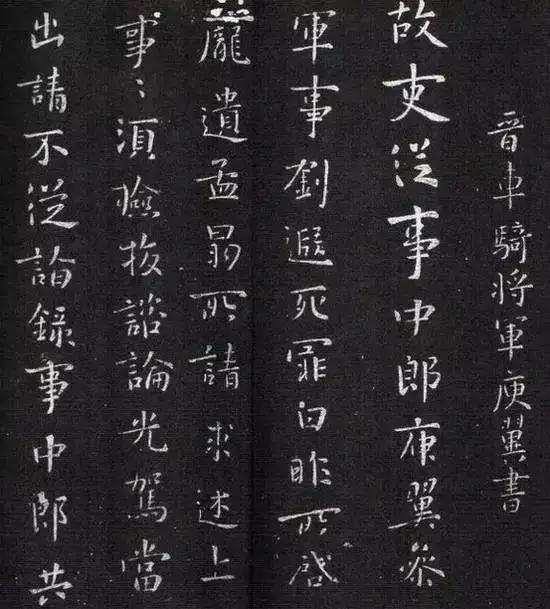 晉車騎將軍庾翼書
故吏從事中郎庾翼參
軍事劉遐死罪白昨所啓
龐遺孟昺所請求述上
事〻須檢按諮論光駕當
出請不從論錄事中郎共